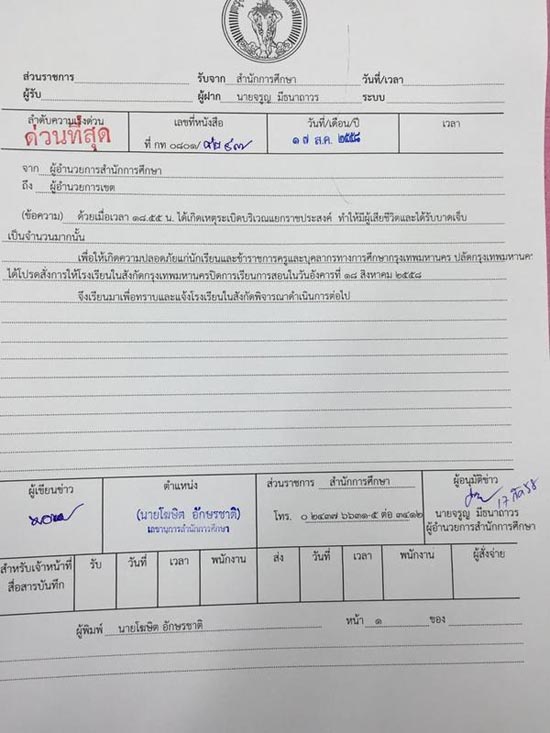 ส่วนราชการ รับจาก สำนักการศึกษา วันที่/เวลา
ผู้รับ ผู้ฝาก นายจรูญ มีธนาถาวร ระบบ
ลำดับความเร่งด่วน เลขที่หนังสือ วันที่/เดือน/ปี เวลา
ด่วนที่สุด ที่ กท ๐๘๐๑/ ๑๗ ส.ค. ๒๕๕๘
จาก ผู้อำนวยการสำนักการศึกษา
ถึง ผู้อำนวยการเขต
(ข้อความ) ด้วยเมื่อเวลา ๑๘.๕๕ น. ได้เกิดเหตุระเบิดบริเวณแยกราชประสงค์ ทำให้มีผู้เสียชีวิตและได้รับบาดเจ็บ
เป็นจำนวนมากนั้น
เพื่อให้เกิดความปลอดภัยแก่นักเรียนและข้าราชการครูและบุคลากรทางการศึกษากรุงเทพมหานคร ปลัดกรุงเทพมหานคร
ได้โปรดสั่งการให้โรงเรียนในสังกัดกรุงเทพมหานครปิดการเรียนการสอนในวันอังคารที่ ๑๘ สิงหาคม ๒๕๕๘
จึงเรียนมาเพื่อทราบและแจ้งโรงเรียนในสังกัดพิจารณาดำเนินการต่อไป
ผู้เขียนข่าว ตำแหน่ง ส่วนราชการ สำนักการศึกษา ผู้อนุมัติข่าว
(นายโฆษิต อักษรชาติ)
เลขานุการสำนักการศึกษา
โทร. ๐ ๒๔๓๗ ๖๖๓๑-๕ ต่อ ๓๔๑๒ นายจรูญ มีธนาถาวร
ผู้อำนวยการสำนักการศึกษา
สำหรับเจ้าหน้าที่ รับ วันที่ เวลา พนักงาน ส่ง วันที่ เวลา พนักงาน ผู้สั่งจ่าย
สื่อสารบันทึก
ผู้พิมพ์ นายโฆษิต อักษรชาติ หน้า ๑ ของ